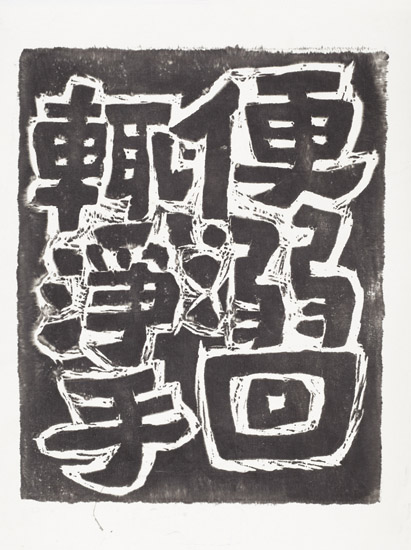 便溺回
輒淨手